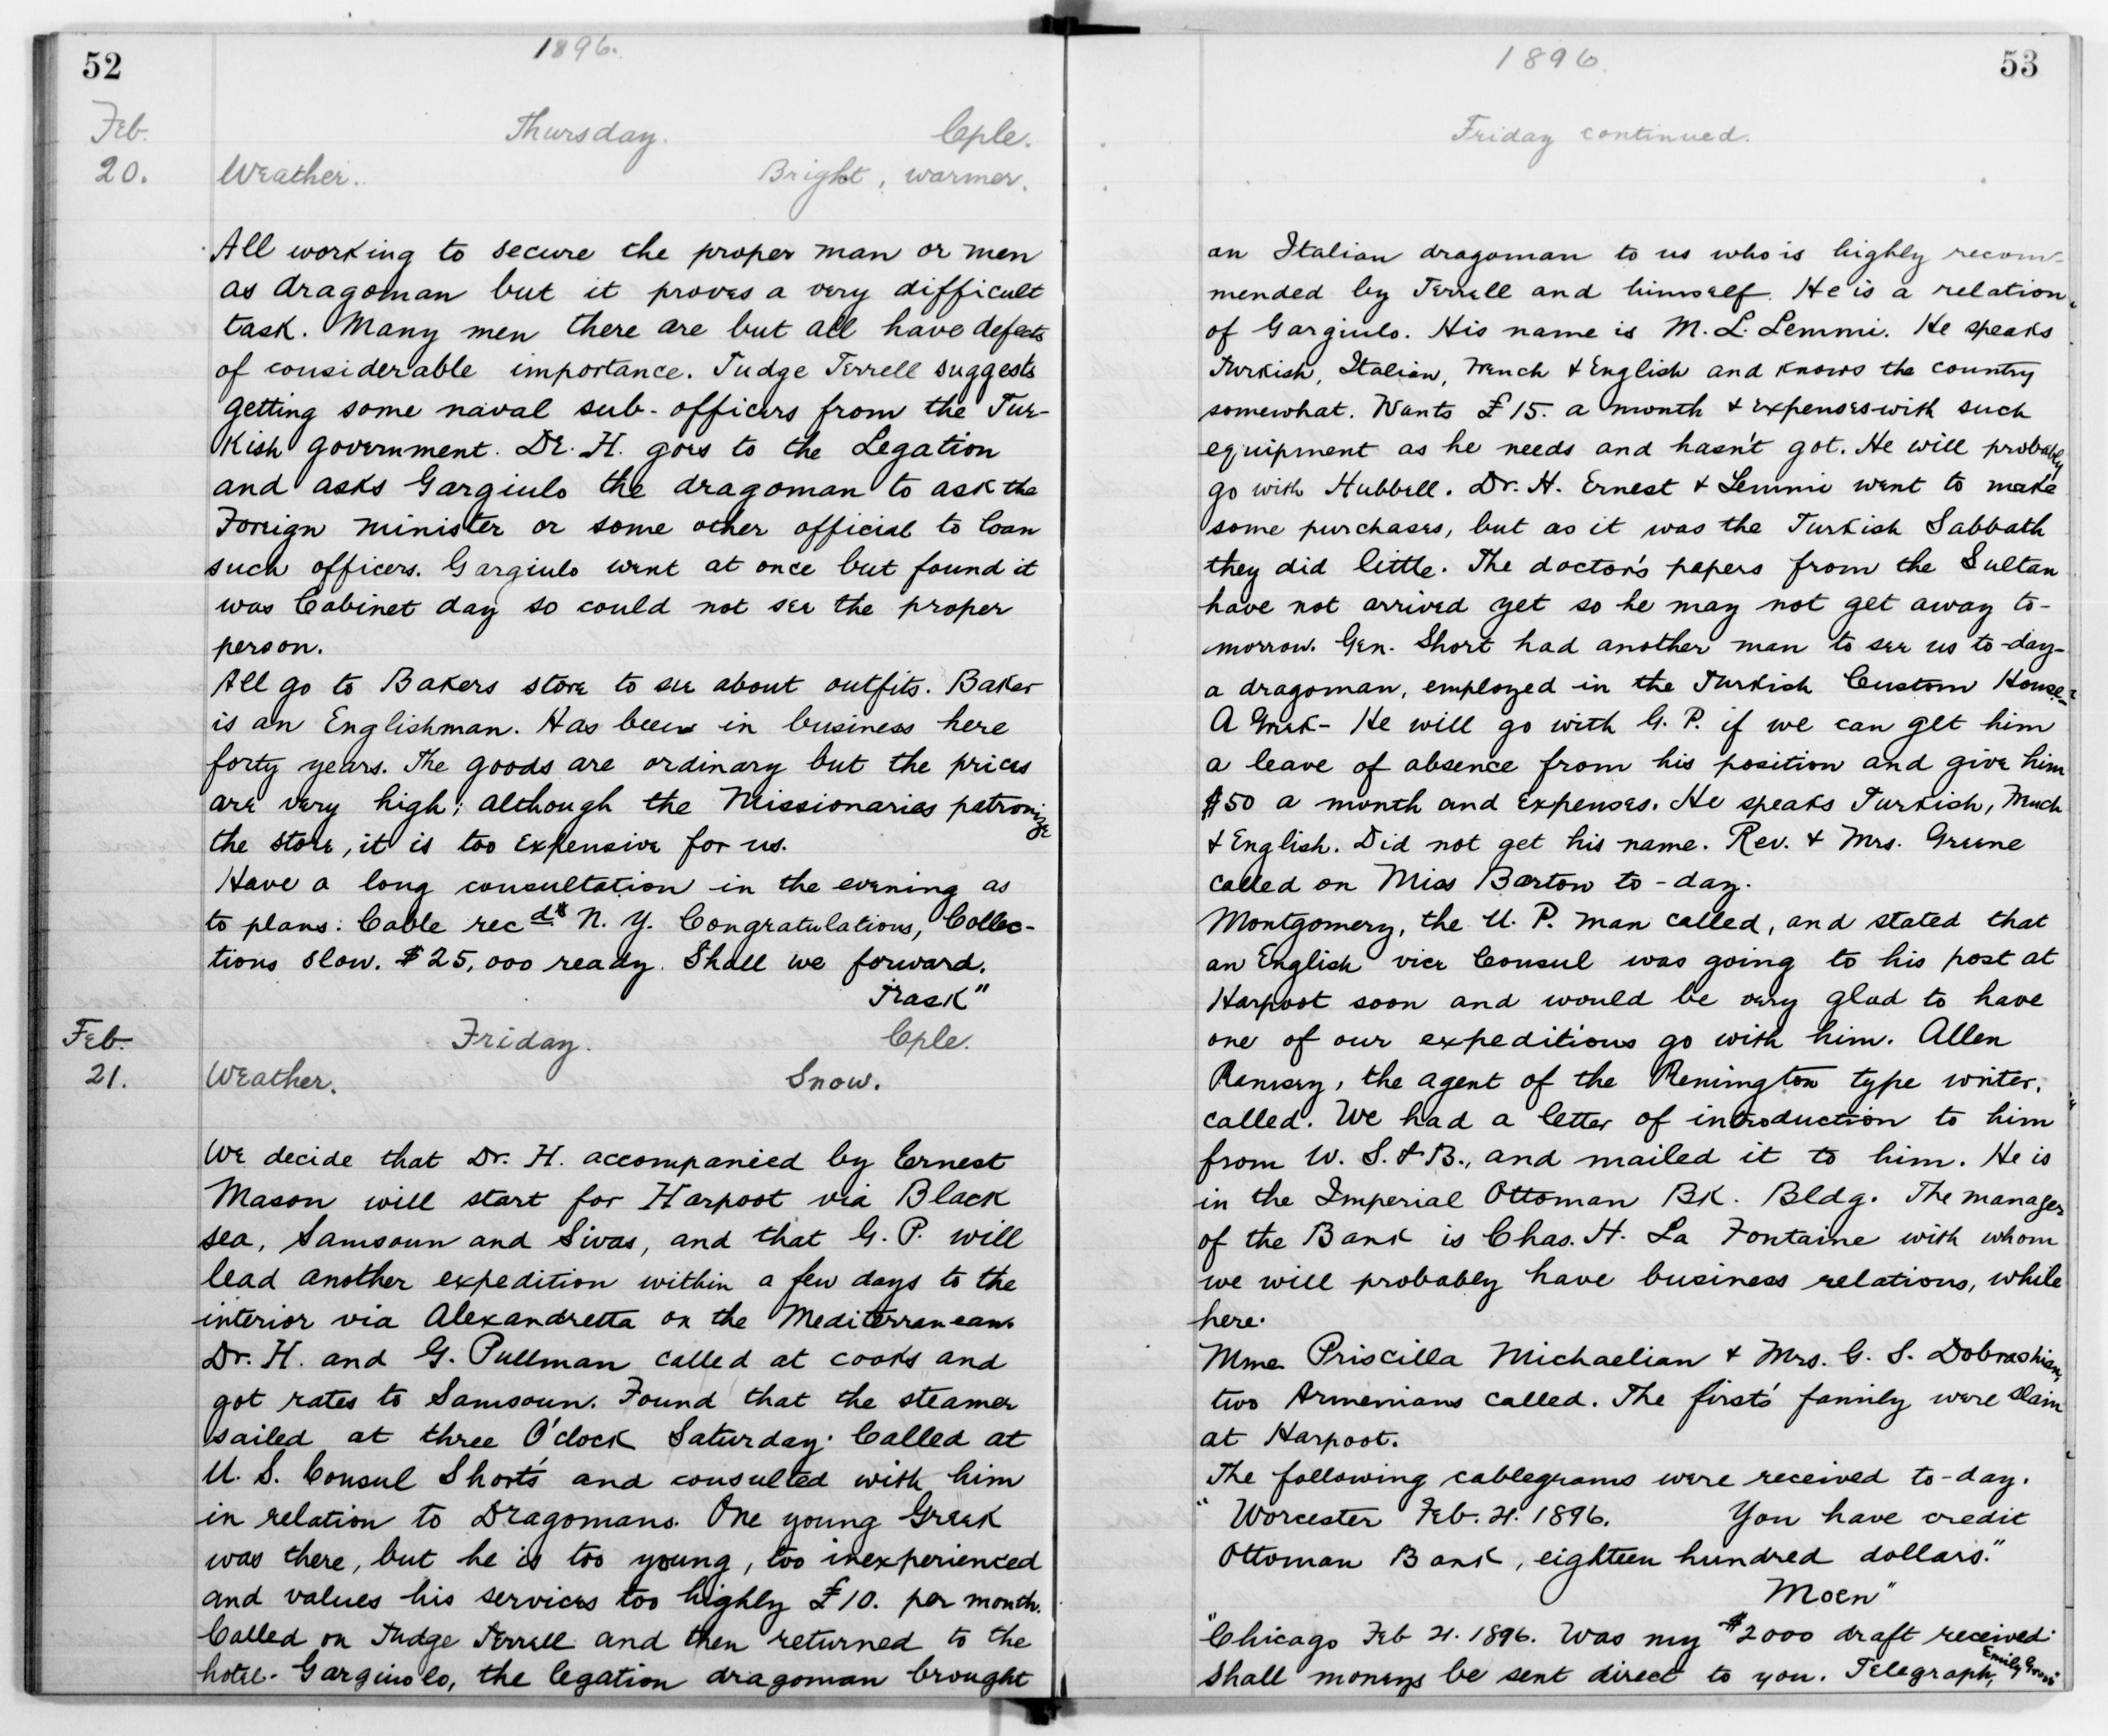 52
1896.
Feb. Thursday. Cple.
20. Weather. Bright, warmer.
All working to secure the proper man or men
as dragoman but it proves a very difficult
task. Many men there are but all have defects
of considerable importance. Judge Terrell suggests
getting some naval sub-officers from the Tur-
kish government. Dr. H. goes to the Legation
and asks Gargiulo the dragoman to ask the
Foreign minister or some other official to loan
such officers. Gargiulo went at once but found it
was Cabinet day so could not see the proper
person.
All go to Bakers store to see about outfits. Baker
is an Englishman. Has been in business here
forty years. The goods are ordinary but the prices
are very high; although the Missionaries patronize
the store, it is too expensive for us.
Have a long consultation in the evening as
to plans: Cable recd. N. Y. Congratulations, Collec-
tions slow. $25,000 ready. Shall we forward.
Trask"
Feb. Friday. Cple.
21. Weather. Snow.
We decide that Dr. H. accompanied by Ernest
Mason will start for Harpoot via Black
sea, Samsoun and Sivas, and that G. P. will
lead another expedition within a few days to the
interior via Alexandretta on the Mediterranean.
Dr. H. and G. Pullman called at cooks and
got rates to Samsoun. Found that the steamer
sailed at three O'clock Saturday. Called at
U. S. Consul Short's and consulted with him
in relation to Dragomans. One young Greek
was there, but he is too young, too inexperienced
and values his services too highly £10. per month.
Called on Judge Terrell and then returned to the
hotel. Garginolo, the legation dragoman brought
1896
53
Friday continued.
an Italian dragoman to us who is highly recom-
mended by Terrell and himself. He is a relation
of Gargiulo. His name is M. L. Lemmi. He speaks
Turkish, Italian, French & English and knows the country
somewhat. Wants £15. a month & expenses with such
equipment as he needs and hasn't got. He will probably
go with Hubbell. Dr. H. Ernest & Lemmi went to make
some purchases, but as it was the Turkish Sabbath
they did little. The doctor's papers from the Sultan
have not arrived yet so he may not get away to-
morrow. Gen. Short had another man to see us to-day-
a dragoman, employed in the Turkish Custom House-
A Greek- He will go with G. P. if we can get him
a leave of absence from his position and give him
$50 a month and expenses. He speaks Turkish, French
& English. Did not get his name. Rev. & Mrs. Greene
called on Miss Barton to-day.
Montgomery, the U. P. man called, and stated that
an English vice Consul was going to his post at
Harpoot soon and would be very glad to have
one of our expeditions go with him. Allen
Ramsey, the agent of the Remington type writer,
called. We had a letter of introduction to him
from W. S. & B., and mailed it to him. He is
in the Imperial Ottoman Bk. Bldg. The manager
of the Bank is Chas. H. La Fontaine with whom
we will probably have business relations, while
here.
Mme. Priscilla Michaelian & Mrs. G. S. Dobrashian,
two Armenians called. The first's family were slain
at Harpoot.
The following cablegrams were received to-day.
"Worcester Feb. 21. 1896. You have credit
Ottoman Bank, eighteen hundred dollars."
Moen"
"Chicago Feb 21. 1896. Was my $2000 draft received.
Shall moneys be sent direct to you. Telegraph, Emily